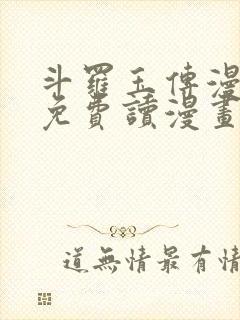 斗羅玉傳漫
免費讀漫畫
道無情最有情